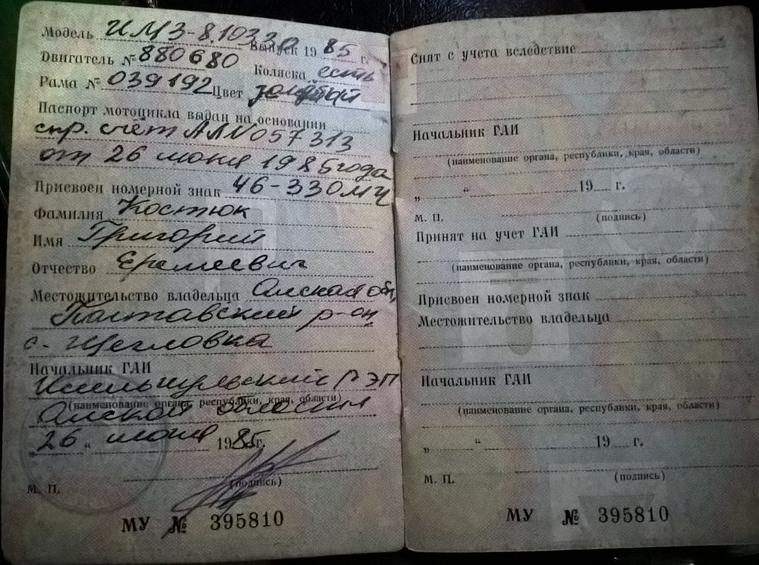 Модель ИМЗ-8.1033 Выпуск 1985 г.
Двигатель № 880680 Коляска есть
Рама № 039192 Цвет голубой
Паспорт мотоцикла выдан на основании
спр. счёт 057313
от 26 июня 1985 года
Присвоен номерной знак 46-33 ОМЧ
Фамилия Костюк
Имя Григорий
Отчество Еремеевич
Местожительство владельца Омская обл,
Полтавский р-он,
с. Щегловка
Начальник ГАИ
Исилькульский РЭП
(наименование органа, республики, края, области)
Омской области
26 „ июня 1985 г.
М. П. (подпись)
МУ № 395810
Снят с учета вследствие
Начальник ГАИ
(наименование органа, республики, края, области)
„ “ 19 г.
М. П. (подпись)
Принят на учет ГАИ
(наименование органа, республики, края, области)
Присвоен номерной знак
Местожительство владельца
Начальник ГАИ
(наименование органа, республики, края, области)
„ “ 19 г.
М. П. (подпись)
МУ № 395810